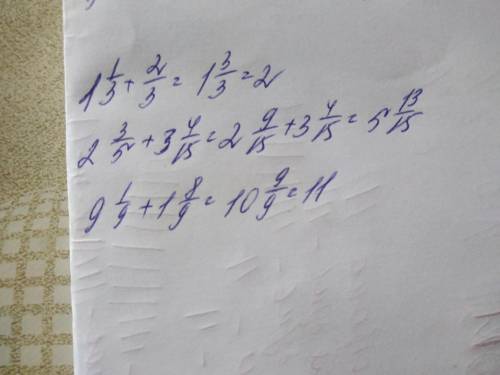 1 1/3 + 2/3 = 1 3/3 = 2
2 3/5 + 3 4/15 = 2 9/15 + 3 4/15 = 5 13/15
9 1/9 + 1 8/9 = 10 9/9 = 11